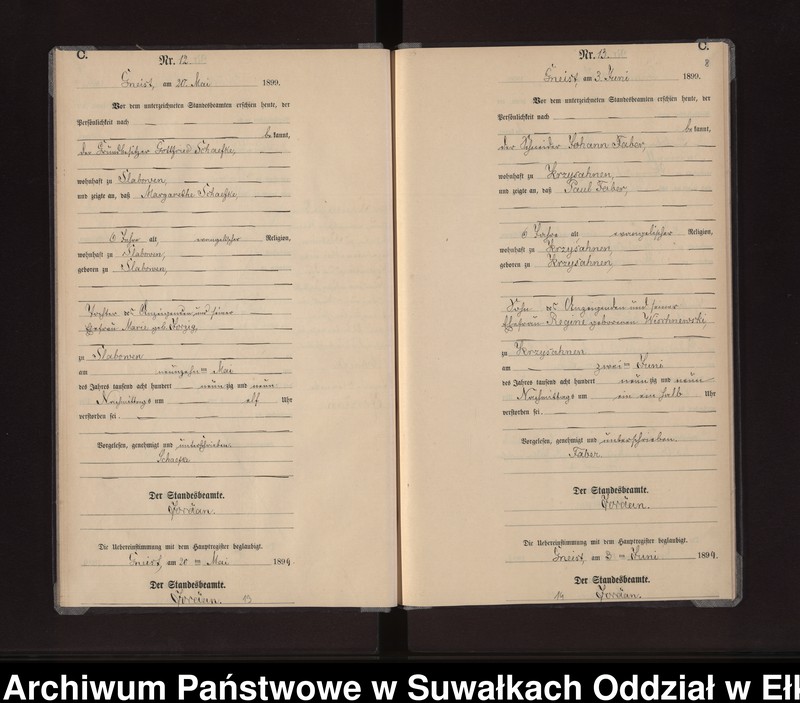 C.
Nr. 12
Gneist, am 20. Mai 1899.
Vor dem unterzeichneten Standesbeamten erschien heute, der
Persönlichkeit nach
bekannt,
der Grundbesitzer Gottfried Schaefke,
wohnhaft zu Slabowen,
und zeigte an, daß Margarethe Schaefke,
6 Jahre alt, evangelischer Religion,
wohnhaft zu Slabowen,
geboren zu Slabowen,
Tochter des Anzeigenden und seiner
Ehefrau Marie geb.
zu Slabowen
am neunzehnten Mai
des Jahres tausend acht hundert neunzig und neun
Nachmittags um elf Uhr
verstorben sei.
Vorgelesen, genehmigt und unterschrieben.
Schaefke
Der Standesbeamte.
Die Uebereinstimmung mit dem Hauptregister beglaubigt.
Gneist, am 20ten Mai 1899
Der Standesbeamte.
C.
Nr. 13
8
Gneist, am 3. Juni 1899.
Vor dem unterzeichneten Standesbeamten erschien heute, der
Persönlichkeit nach
bekannt,
der Schneider Johann Faber,
wohnhaft zu Krzysahnen,
und zeigte an, daß Paul Faber,
6 Jahre alt evangelischer Religion,
wohnhaft zu Krzysahnen,
geboren zu Krzysahnen,
Sohn des Anzeigenden und seiner
Ehefrau Regine geborenen
zu Krzysahnen
am zweiten Juni
des Jahres tausend acht hundert neunzig und neun
Nachmittags um ein ein halb Uhr
verstorben sei.
Vorgelesen, genehmigt und unterschrieben.
Faber
Der Standesbeamte.
Die Uebereinstimmung mit dem Hauptregister beglaubigt.
Gneist, am 3ten Juni 1899.
Der Standesbeamte.
Archiwum Państwowe w Suwałkach Oddział w Ełk